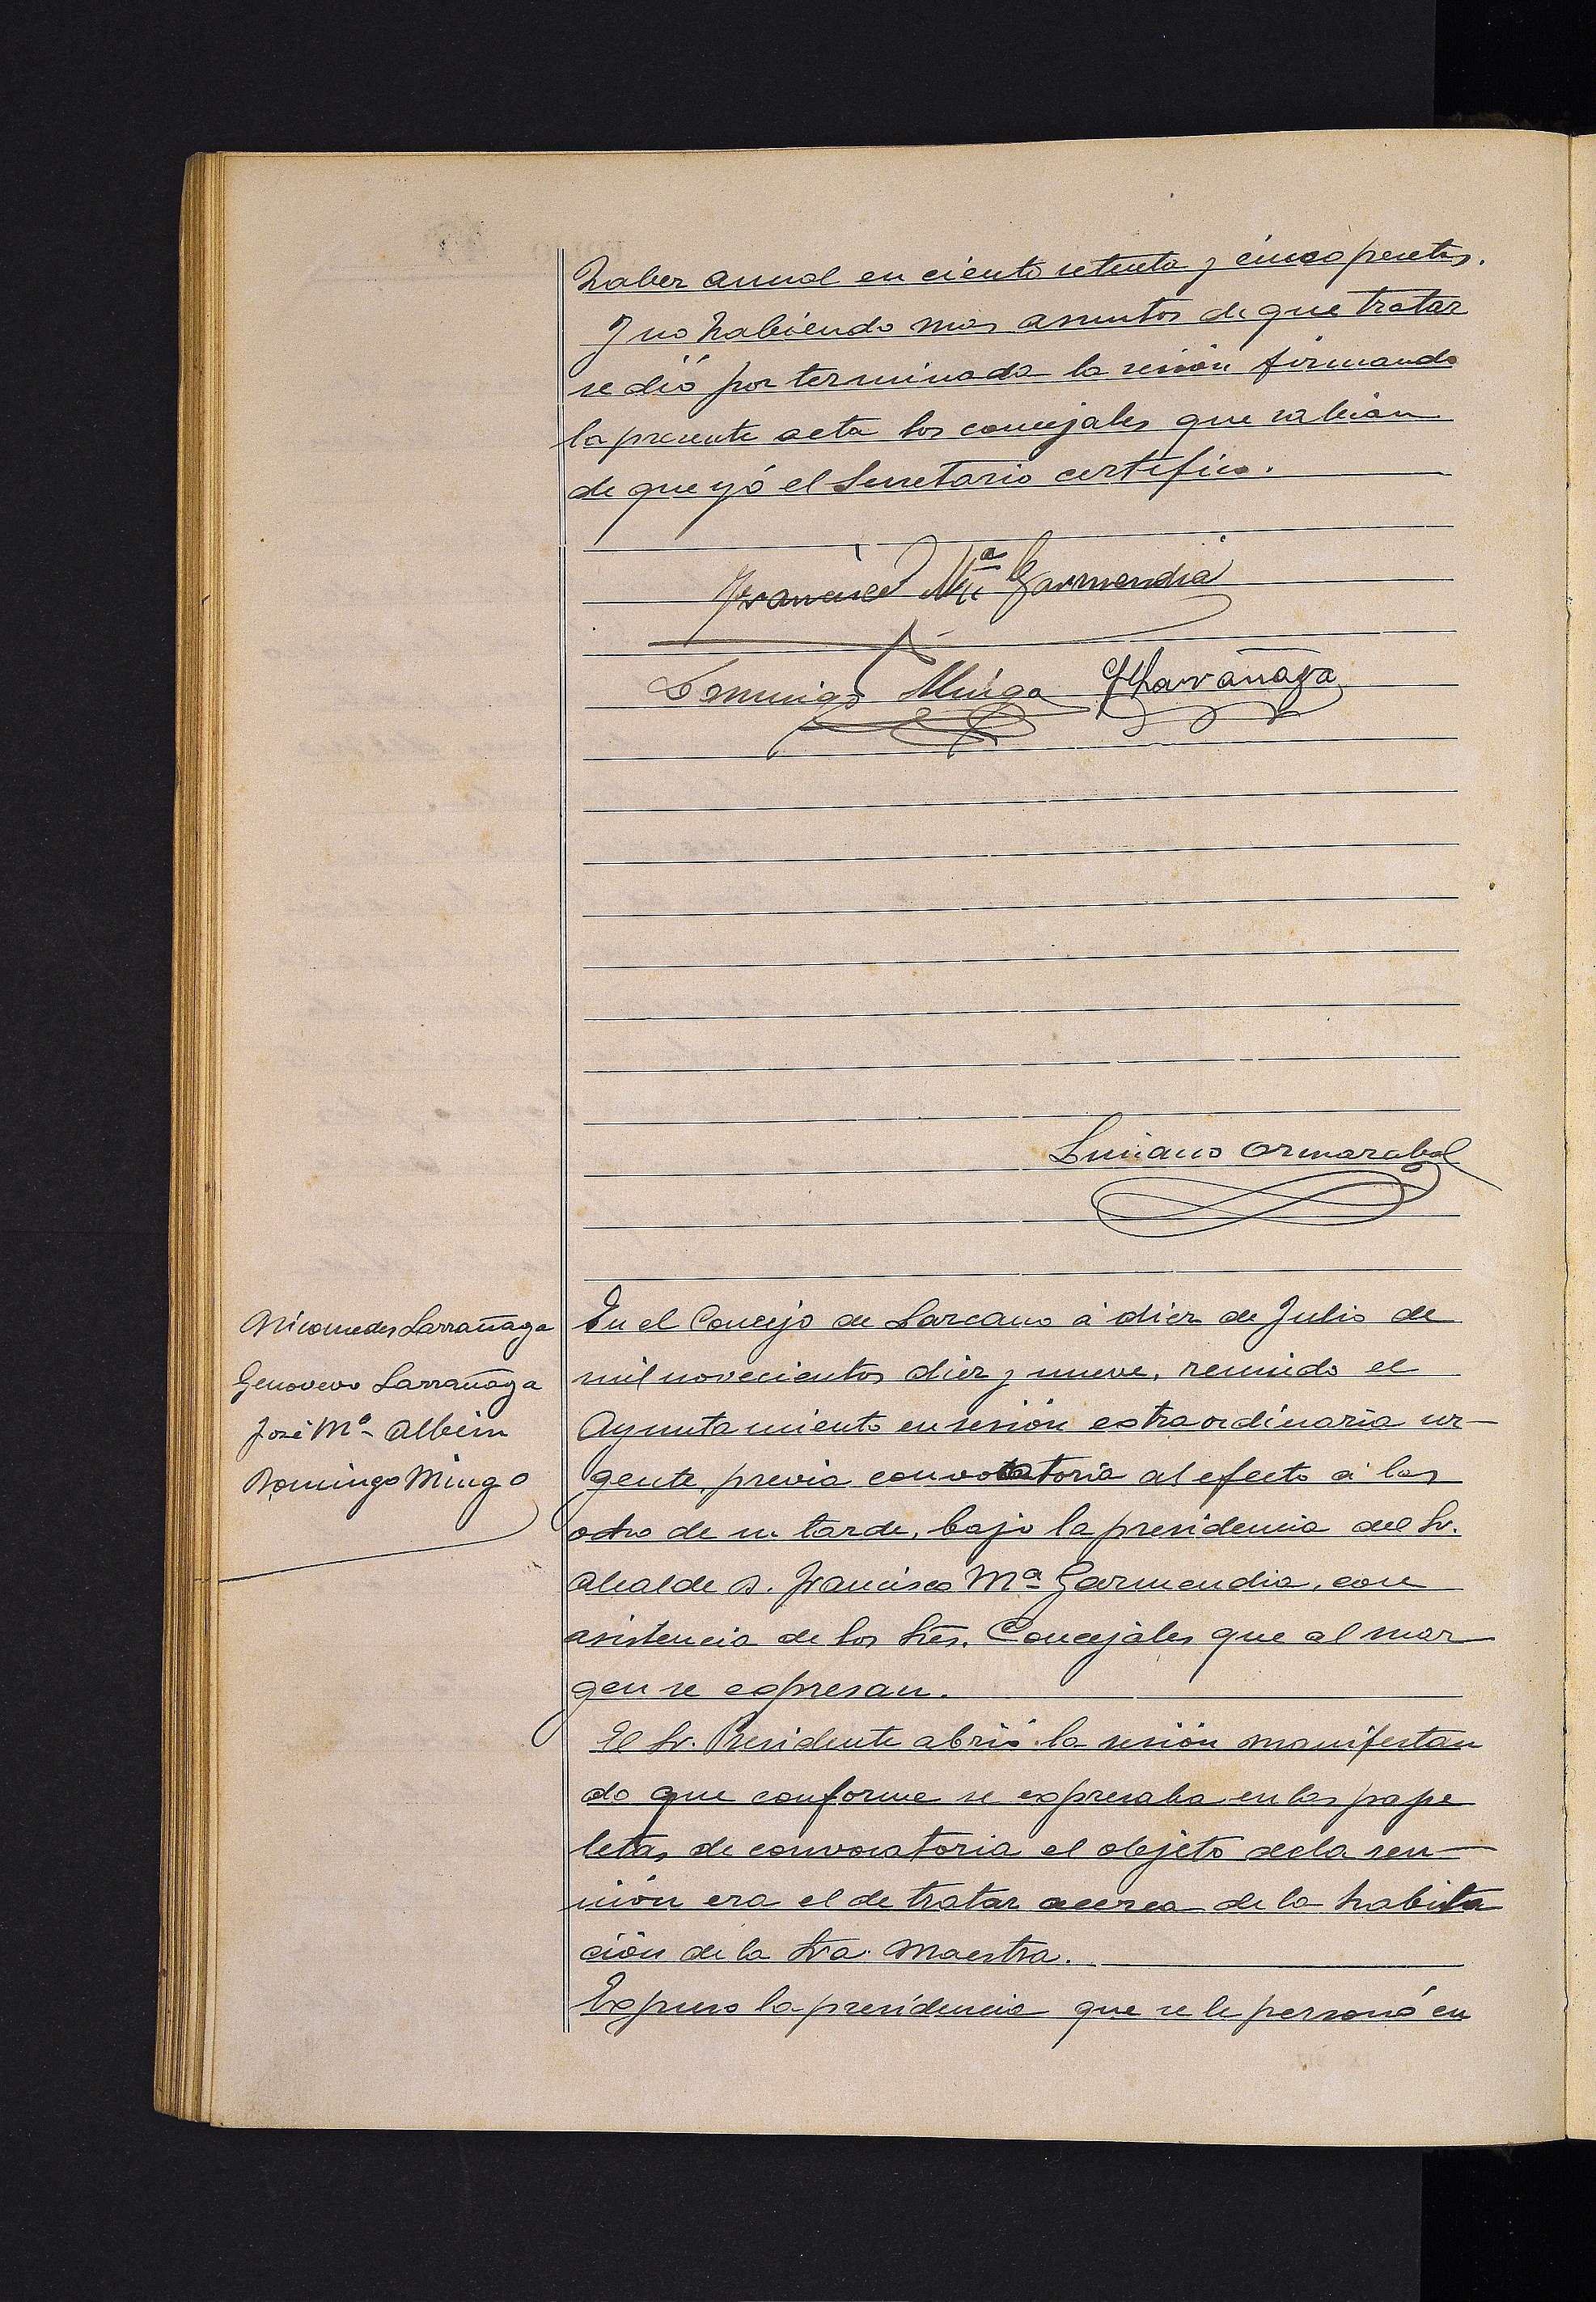 haber anual en ciento setenta y cinco pesetas.
Y no habiendo mas asuntos de que tratar
se dió por terminada la sesión firmando
la presente acta los concejales que sabian
de que yó el Secretario certifico.
Francisco Mª Garmendia
Domingo Mingo Larrañaga
Luciano Ormazabal
Nicomedes Larrañaga
Genovevo Larrañaga
José Mª Albisu
Domingo Mingo
En el Concejo de Lazcano á diez de Julio de
mil novecientos diez y nueve, reunido el
Ayuntamiento en sesión extraordinaria ur-
gente, previa convocatoria al efecto á las
ocho de su tarde, bajo la presidencia del Sr.
Alcalde D. Francisco Mª Garmendia, con
asistencia de los Sres. Concejales que al mar
gen se expresan.
El Sr. Presidente abrió la sesión manifestan
do que conforme se expresaba en las pape
letas de convocatoria el objeto de la reu-
nión era el de tratar acerca de la habita
ción de la Sra. Maestra.
Expuso la presidencia que se le personó en